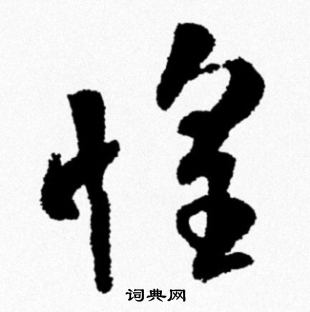 惶
词典网